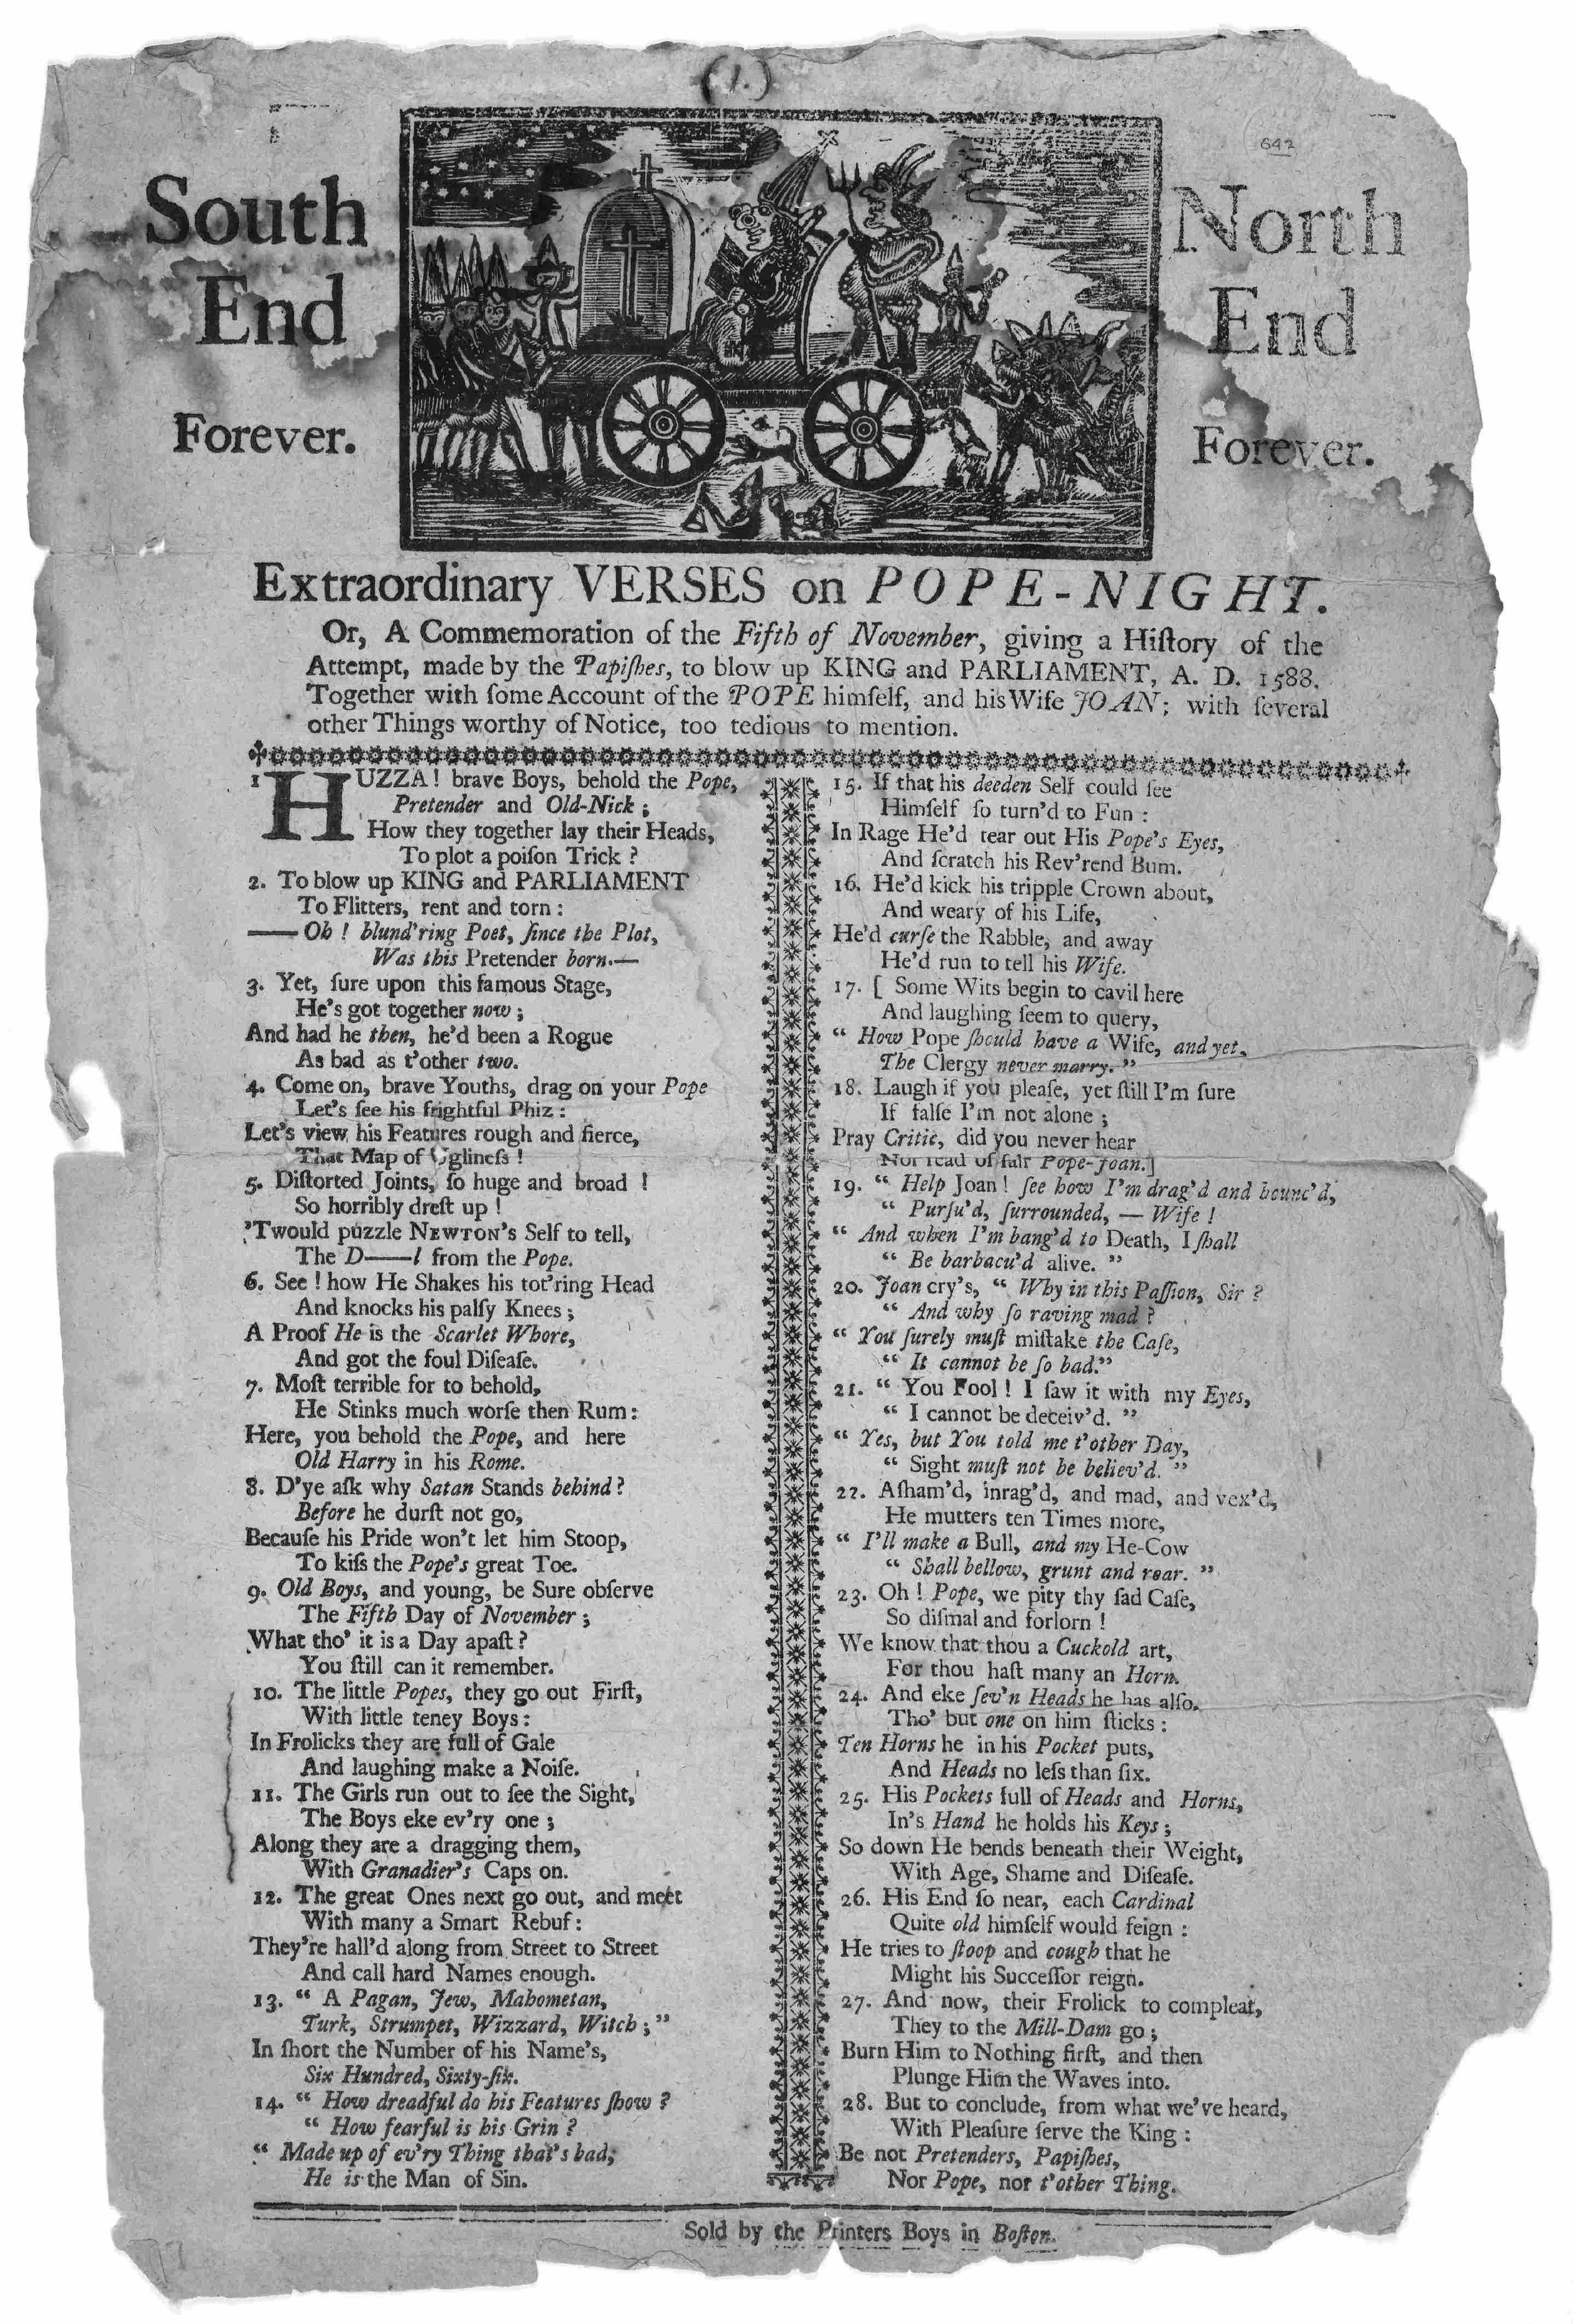 (1.)
642
South
End
Forever.
North
End
Forever.
Extraordinary VERSES on POPE-NIGHT.
Or, A Commemoration of the Fifth of November, giving a Hiſtory of the
Attempt, made by the Papiſhes, to blow up KING and PARLIAMENT, A. D. 1588.
Together with ſome Account of the POPE himſelf, and his Wife JOAN; with ſeveral
other Things worthy of Notice, too tedious to mention.
1 HUZZA! brave Boys, behold the Pope,
Pretender and Old-Nick;
How they together lay their Heads,
To plot a poiſon Trick?
2. To blow up KING and PARLIAMENT
To Flitters, rent and torn:
—— Oh! blund'ring Poet, ſince the Plot,
Was this Pretender born.—
3. Yet, ſure upon this famous Stage,
He's got together now;
And had he then, he'd been a Rogue
As bad as t'other two.
4. Come on, brave Youths, drag on your Pope
Let's ſee his frightful Phiz:
Let's view his Features rough and fierce,
That Map of Uglineſs!
5. Diſtorted Joints, ſo huge and broad!
So horribly dreſt up!
'Twould puzzle NEWTON's Self to tell,
The D——l from the Pope.
6. See! how He Shakes his tot'ring Head
And knocks his palſy Knees;
A Proof He is the Scarlet Whore,
And got the foul Diſeaſe.
7. Moſt terrible for to behold,
He Stinks much worſe then Rum:
Here, you behold the Pope, and here
Old Harry in his Rome.
8. D'ye aſk why Satan Stands behind?
Before he durſt not go,
Becauſe his Pride won't let him Stoop,
To kiſs the Pope's great Toe.
9. Old Boys, and young, be Sure obſerve
The Fifth Day of November;
What tho' it is a Day apaſt?
You ſtill can it remember.
10. The little Popes, they go out Firſt,
With little teney Boys:
In Frolicks they are full of Gale
And laughing make a Noiſe.
11. The Girls run out to ſee the Sight,
The Boys eke ev'ry one;
Along they are a dragging them,
With Granadier's Caps on.
12. The great Ones next go out, and meet
With many a Smart Rebuf:
They're hall'd along from Street to Street
And call hard Names enough.
13. “ A Pagan, Jew, Mahometan,
Turk, Strumpet, Wizzard, Witch;”
In ſhort the Number of his Name's,
Six Hundred, Sixty-ſix.
14. “ How dreadful do his Features ſhow?
“ How fearful is his Grin?
“ Made up of ev'ry Thing that's bad;
He is the Man of Sin.
15. If that his deeden Self could ſee
Himſelf ſo turn'd to Fun:
In Rage He'd tear out His Pope's Eyes,
And ſcratch his Rev'rend Bum.
16. He'd kick his tripple Crown about,
And weary of his Life,
He'd curſe the Rabble, and away
He'd run to tell his Wife.
17. [ Some Wits begin to cavil here
And laughing ſeem to query,
“ How Pope ſhould have a Wife, and yet,
The Clergy never marry.”
18. Laugh if you pleaſe, yet ſtill I'm ſure
If falſe I'm not alone;
Pray Critic, did you never hear
Nor read of fair Pope-Joan.]
19. “ Help Joan! ſee how I'm drag'd and bounc'd,
“ Purſu'd, ſurrounded, — Wife!
“ And when I'm bang'd to Death, I ſhall
“ Be barbacu'd alive.”
20. Joan cry's, “ Why in this Paſſion, Sir?
“ And why ſo raving mad?
“ You ſurely muſt miſtake the Caſe,
“ It cannot be ſo bad.”
21. “ You Fool! I ſaw it with my Eyes,
“ I cannot be deceiv'd.”
“ Yes, but You told me t'other Day,
“ Sight muſt not be believ'd.”
22. Aſham'd, inrag'd, and mad, and vex'd,
He mutters ten Times more,
“ I'll make a Bull, and my He-Cow
“ Shall bellow, grunt and roar.”
23. Oh! Pope, we pity thy ſad Caſe,
So diſmal and forlorn!
We know that thou a Cuckold art,
For thou haſt many an Horn.
24. And eke ſev'n Heads he has alſo,
Tho' but one on him ſticks:
Ten Horns he in his Pocket puts,
And Heads no leſs than ſix.
25. His Pockets full of Heads and Horns,
In's Hand he holds his Keys;
So down He bends beneath their Weight,
With Age, Shame and Diſeaſe.
26. His End ſo near, each Cardinal
Quite old himſelf would feign:
He tries to ſtoop and cough that he
Might his Succeſſor reign.
27. And now, their Frolick to compleat,
They to the Mill-Dam go;
Burn Him to Nothing firſt, and then
Plunge Him the Waves into.
28. But to conclude, from what we've heard,
With Pleaſure ſerve the King:
Be not Pretenders, Papiſhes,
Nor Pope, nor t'other Thing.
Sold by the Printers Boys in Boſton.